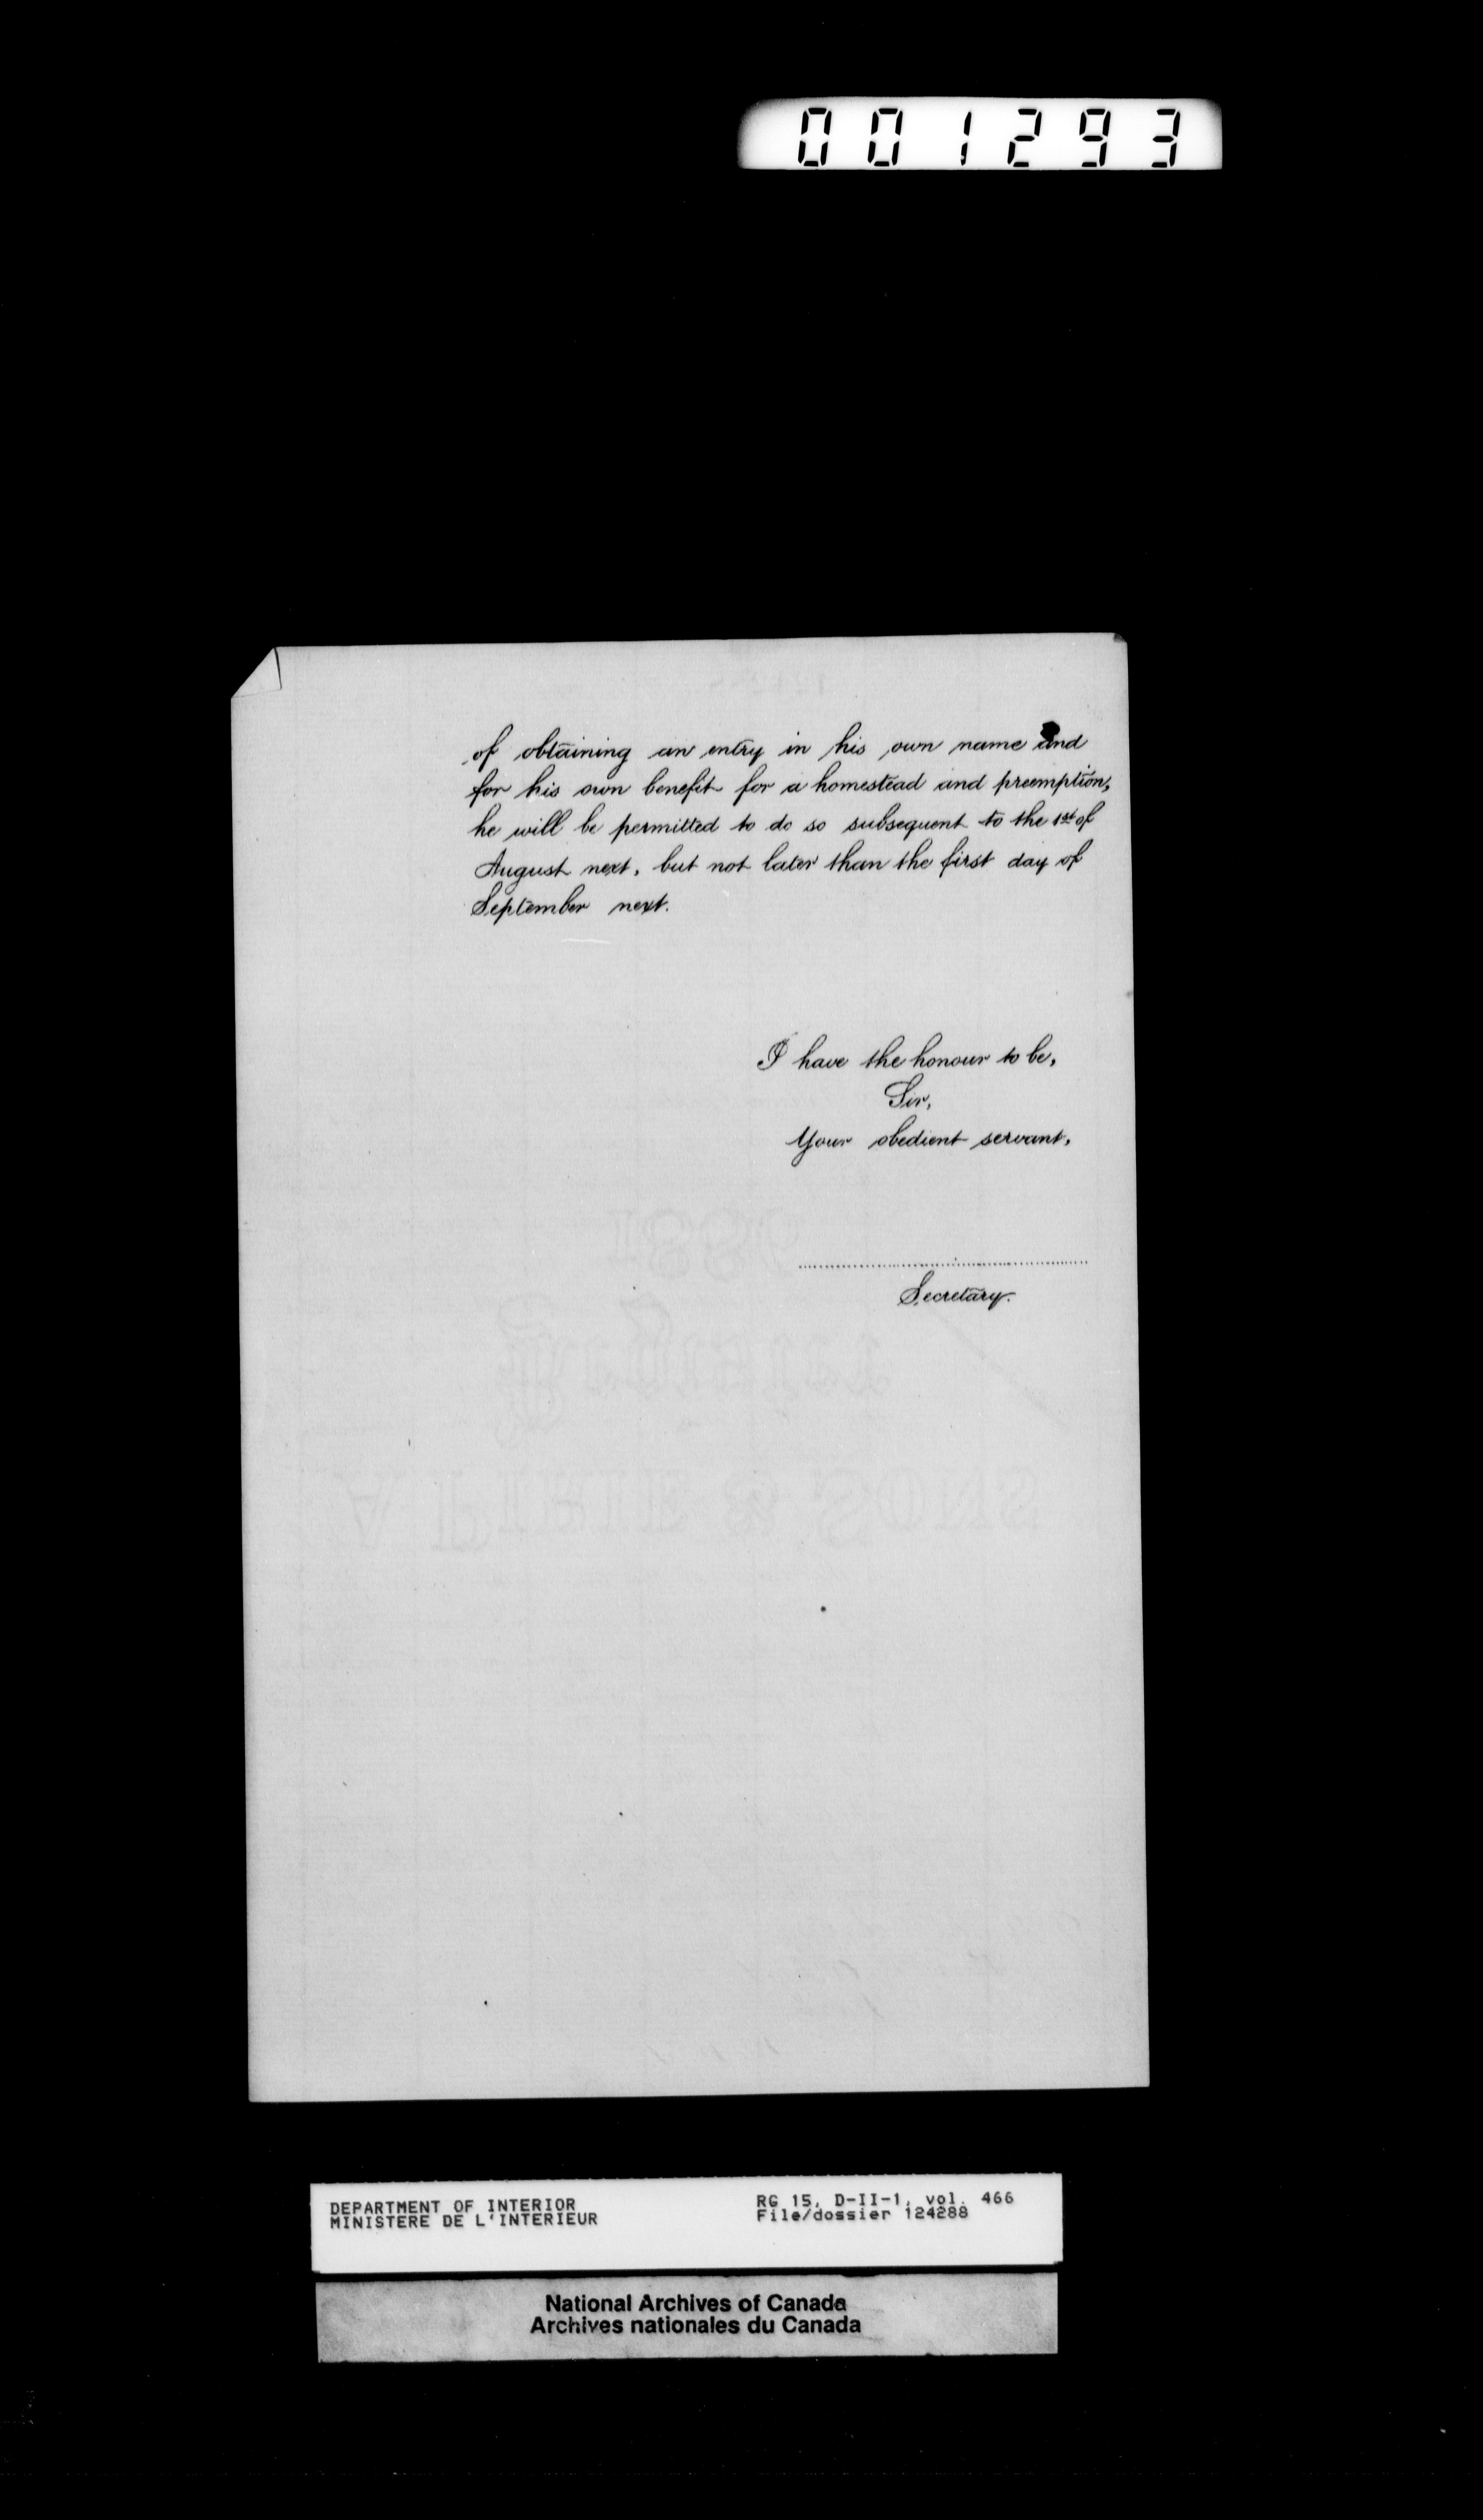 001293
of obtaining an entry in his own name and
for his own benefit for a homestead and preemption,
he will be permitted to do so subsequent to the 1st of
August next, but not later than the first day of
September next.
I have the honour to be,
Sir,
Your obedient servant,
Secretary.
DEPARTMENT OF INTERIOR
MINISTERE DE L'INTERIEUR
RG 15, D-II-1, vol. 466
File/dossier 124288
National Archives of Canada
Archives nationales du Canada